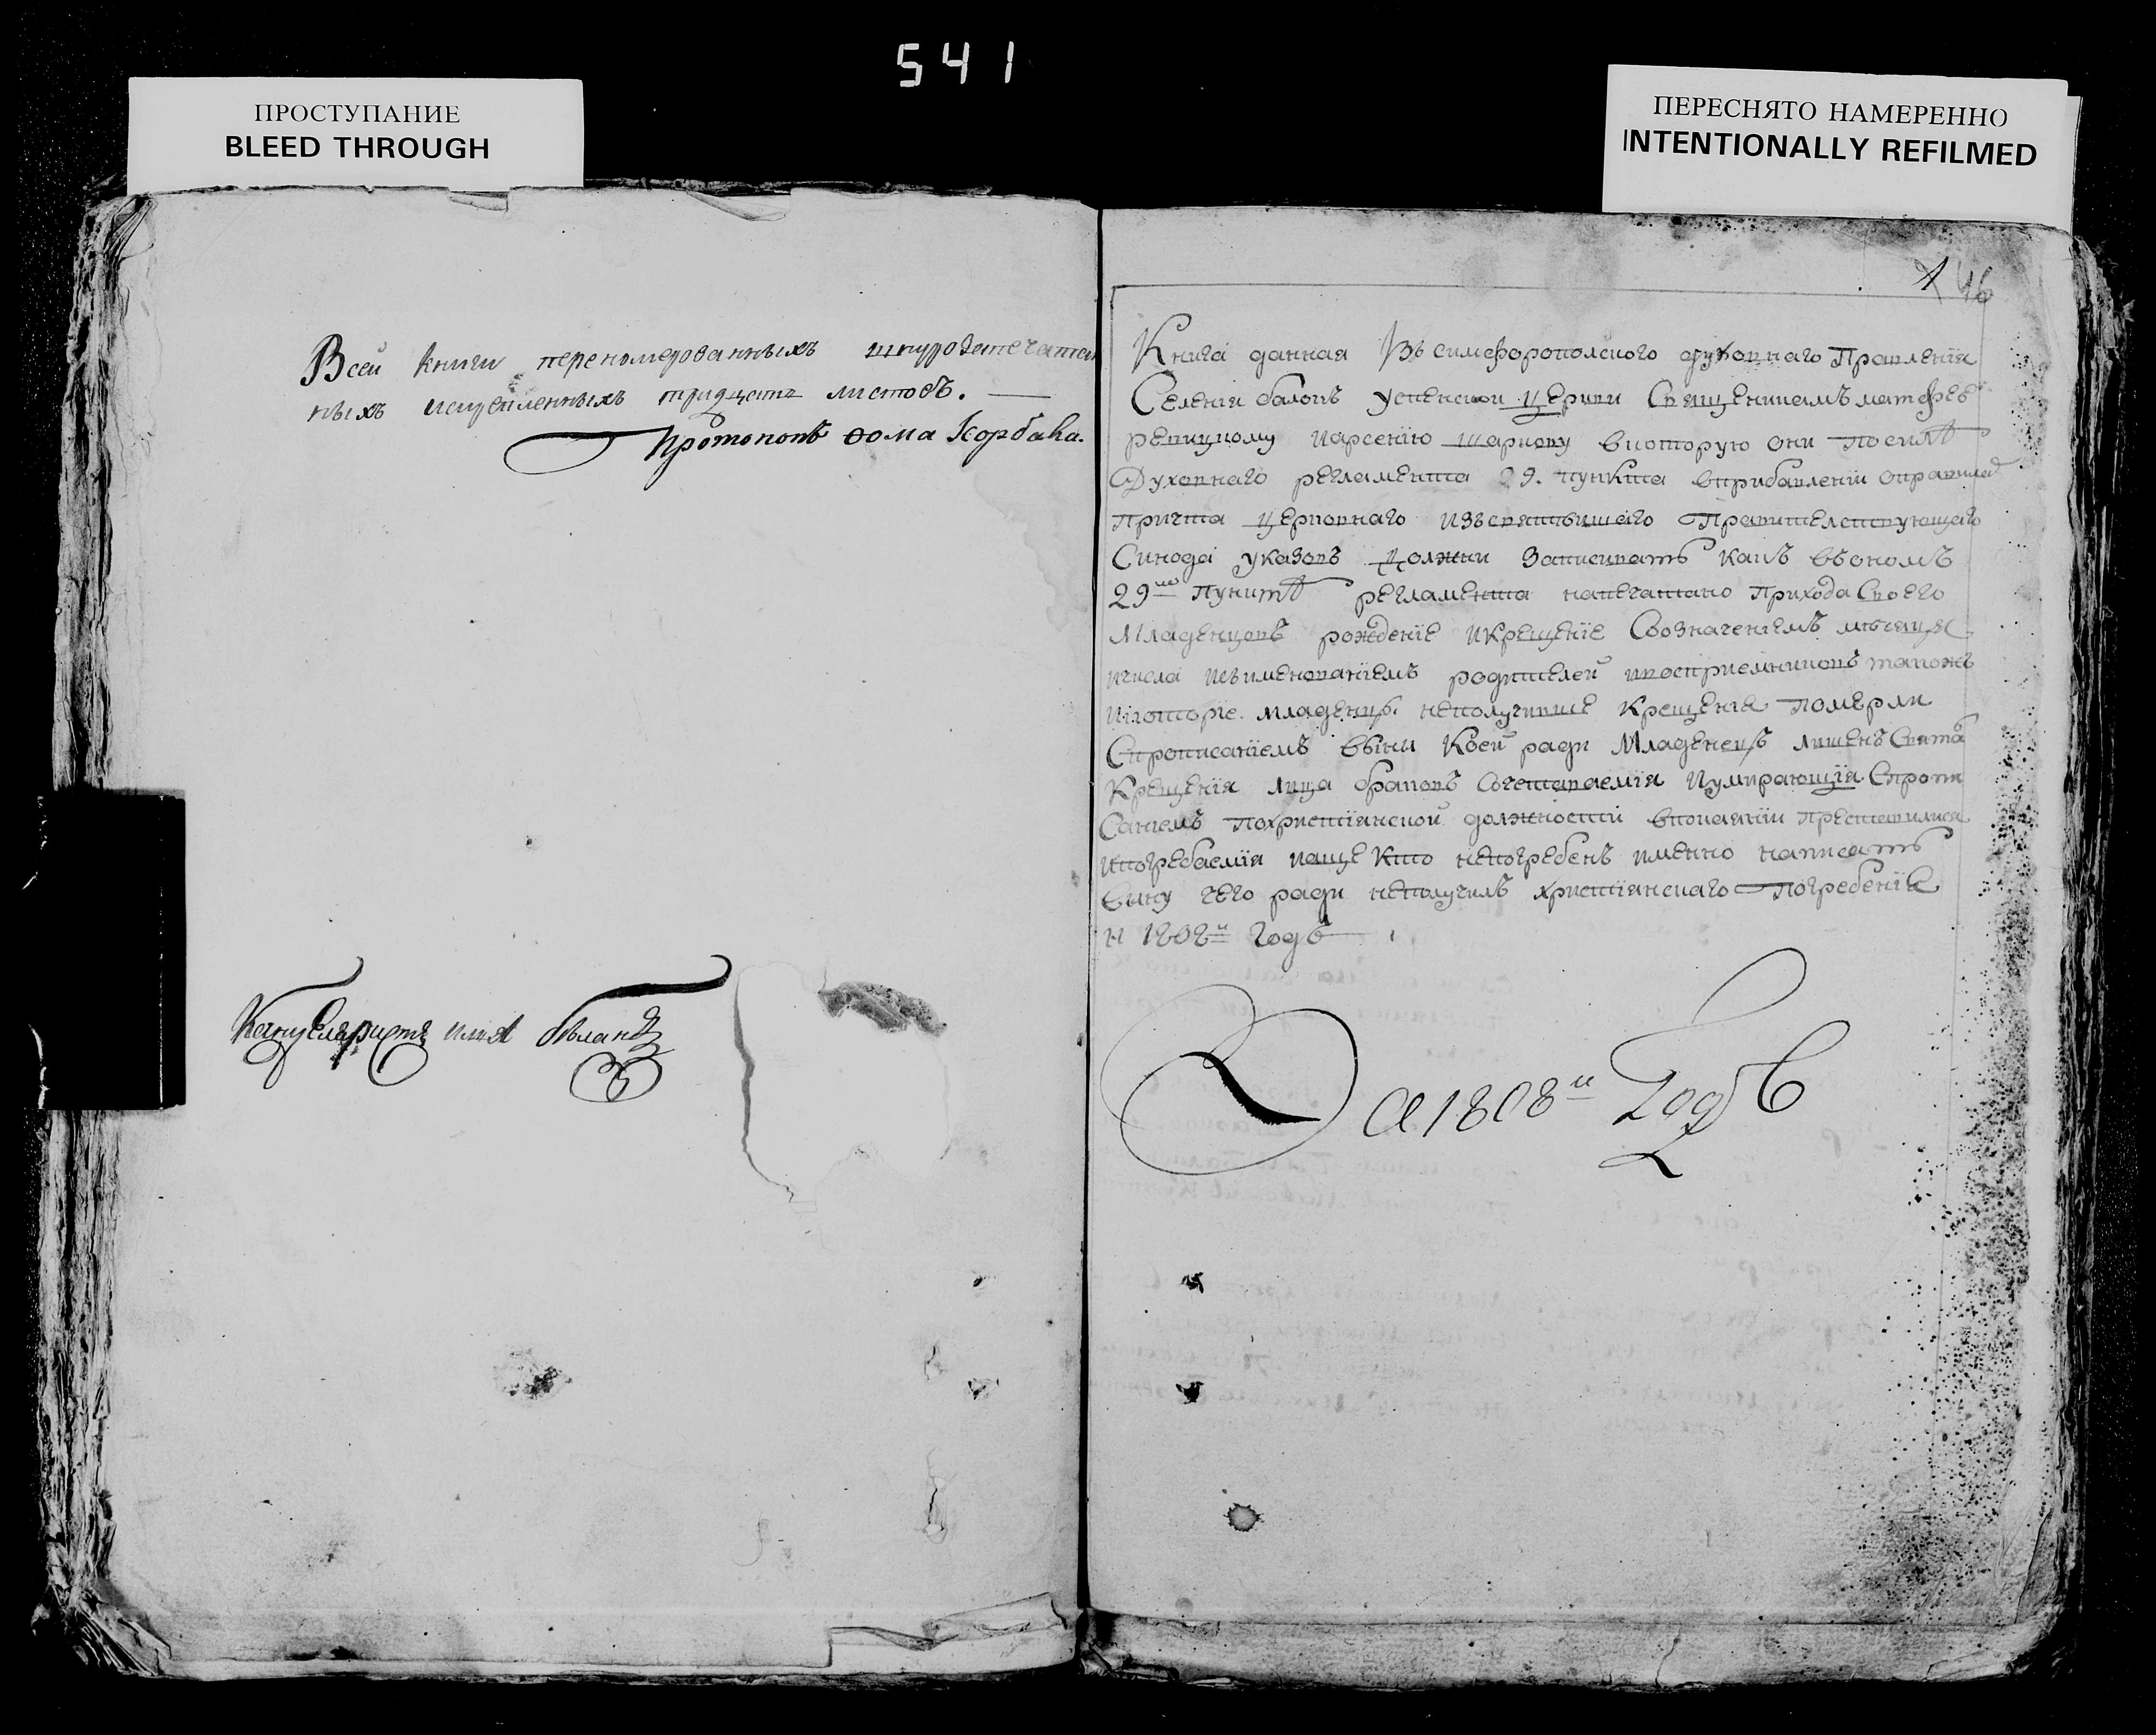 541
ПРОСТУПАНИЕ
BLEED THROUGH
ПЕРЕСНЯТО НАМЕРЕННО
INTENTIONALLY REFILMED
Всей книги переномерованныхъ шнурозапечатан
ныхъ искрепленныхъ тридцать листовъ.
Протопопъ Ѳома Корбака.
Канцеляристъ
46
Книга данная Изъ симферополского духовнаго Правления
Селения балокъ успенскои церкви Священникамъ матфею
репицкому иарсению шаркову вкоторую они посилѣ
Духовнаго регламента 29. пункта вприбавлении оправилаⷯ
причта церковнаго изъсвятѣишаго Правителствующаго
Синода указовъ должни Записивать какъ въономъ
29мъ Пунктѣ регламента напечатано Прихода Своего
Младенцовъ рождение икрещение Созначениемъ мѣсяця
ичисла исъименованиемъ родителей ивосприемниковъ такожъ
икоторїе младенцы неполучивше крещения померли
Спрописаниемъ вины Коей ради Младенецъ лишенъ Свята
Крещенїя лица браковъ Сочетаваемїя Иумирающїя Спропи
Саниемъ похристїянской должности впокаянїи преставилися
ипогребаемїя иаще Кто непогребенъ именно написать
вину чего ради неполучилъ христїянскаго погребенїя
н 1808и годъ
На 1808и Годъ